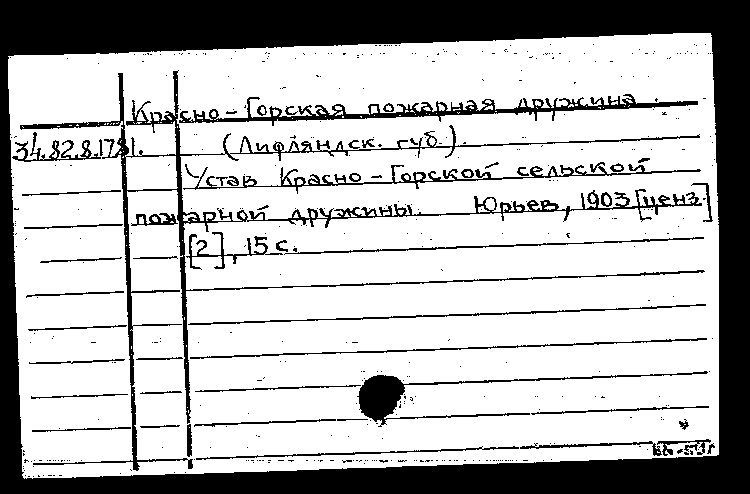 Красно-Горская пожарная дружина.
34.82.8.1781. (Лифляндск. губ.).
Устав Красно-Горской сельской
пожарной дружины. Юрьев, 1903 [ценз]
[2], 15 с.